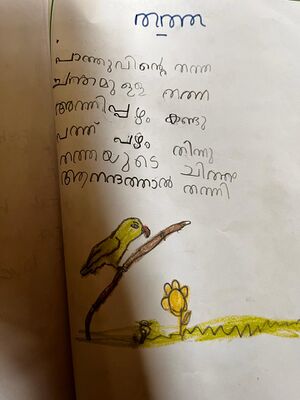 തത്ത
പാത്തുവിന്റെ തത്ത
ചന്തമുള്ള തത്ത
അത്തിപ്പഴം കണ്ടു
പത്ത് പഴം തിന്നു
തത്തയുടെ ചിത്തം
ആനന്ദത്താൽ